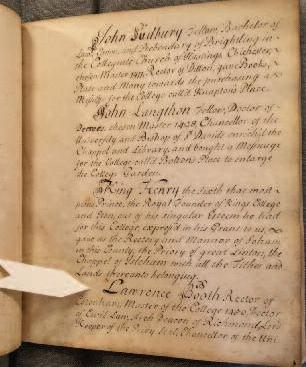 John Sudbury Fellow, Bachelor of
Law, and Prebendary of Brightling in
the Collegiate Church of Hastings Chichester,
chosen Master Rector of Ditton, gave Books,
Plate and Many towards the purchasing a
Messuage for the College call'd Knaptons Place.
John Langthon Fellow, Doctor of
Decrees, chosen Master 1428 Chancellor of the
University and Bishop of St Davids enrich'd the
Chappel and Library, and bought a Messuage
for his College call'd Bolton's Place to enlarge
the College Garden.
King Henry the Sixth that most
pious Prince, the Royal Founder of Kings College
and Eton, out of his singular Esteem he had
for this College, express'd in his Grant to us,
gave us the Rectory and Mannor of Soham
in this County, the Priory of great Linton, the
Chappel of Isleham with all the Tithes and
Lands thereunto belonging.
Lawrence Booth Rector of
Cotenham, Master of the College 1450 Doctor
of Civil Law, Arch Deacon of Richmond, Lord
Keeper of the Privy Seal, Chancellor of the Uni